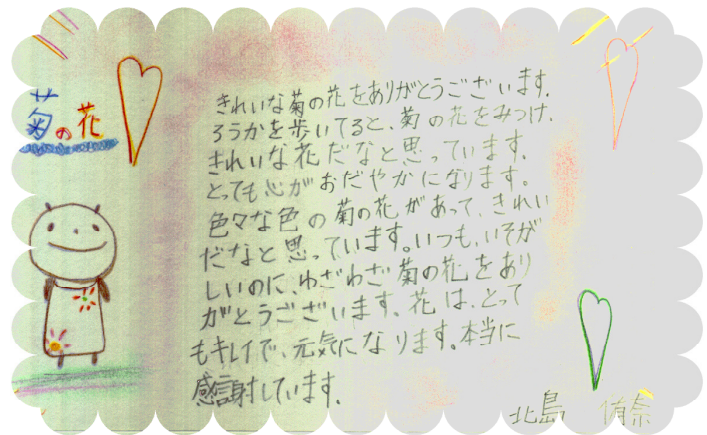 菊の花
きれいな菊の花をありがとうございます。
ろうかを歩いてると、菊の花をみつけ、
きれいな花だなと思っています。
とっても心がおだやかになります。
色々な色の菊の花があって、きれい
だなと思っています。いつも、いそが
しいのに、わざわざ菊の花をあり
がとうございます。花は、とって
もキレイで、元気になります。本当に
感謝しています。
北島 侑奈